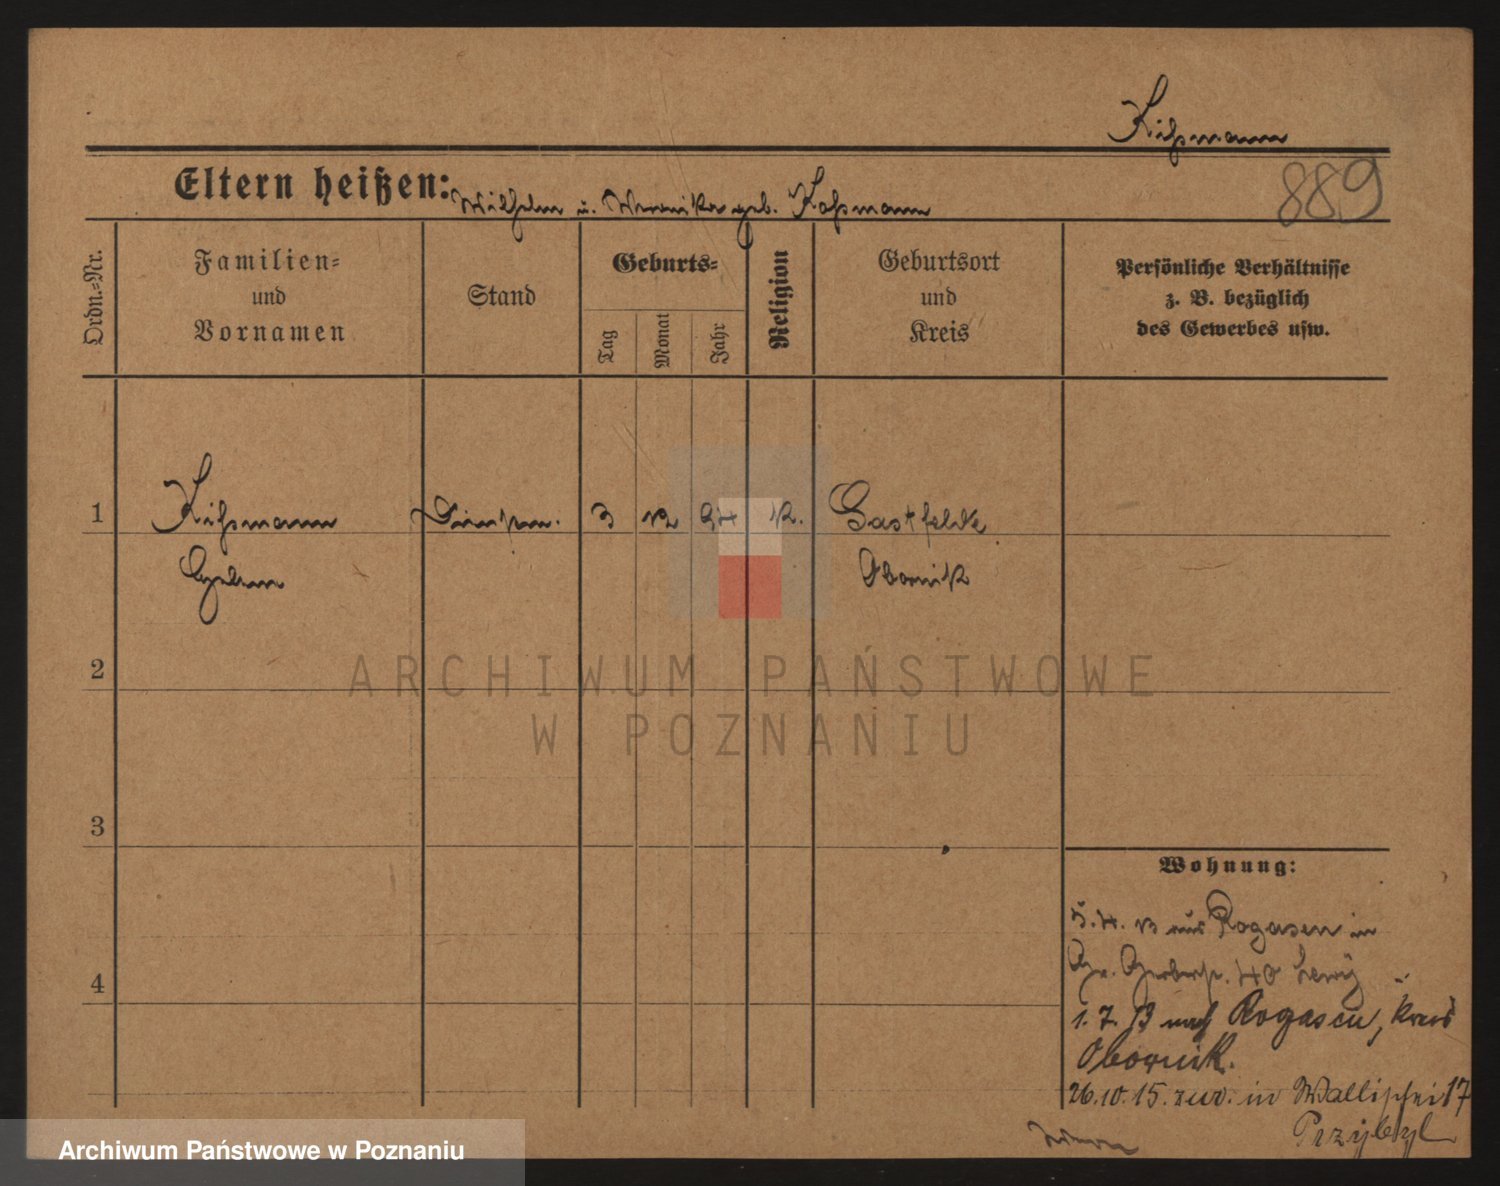 Kißmann
Eltern heißen: Wilhelm u. geb. Koßmann
889
Ordn.-Nr.
Familien-
und
Vornamen
Stand
Geburts-
Tag
Monat
Jahr
Religion
Geburtsort
und
Kreis
Persönliche Verhältnisse
z. B. bezüglich
des Gewerbes usw.
1
Kißmann
3
K.
Gastfelde
Obornik
2
ARCHIWUM PAŃSTWOWE
W POZNANIU
3
4
Wohnung:
5.4. 13 aus Rogasen in
Gr. Gerberstr. 40 Lewy
1.7. 13 nach Rogasen, Kreis
Obornik.
26.10.15. zur. in Wallischei 17
Przybyl
Archiwum Państwowe w Poznaniu